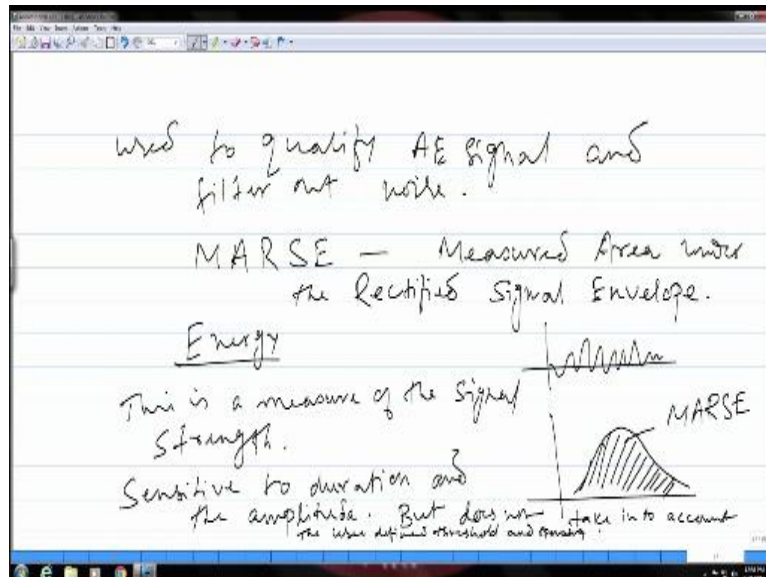 used to qualify AE signal and
filter out noise.
MARSE — Measured Area under
the Rectified Signal Envelope.
Energy
This is a measure of the signal
strength.
MARSE
Sensitive to duration and
the amplitude. But does not take in to account
the user defined threshold and